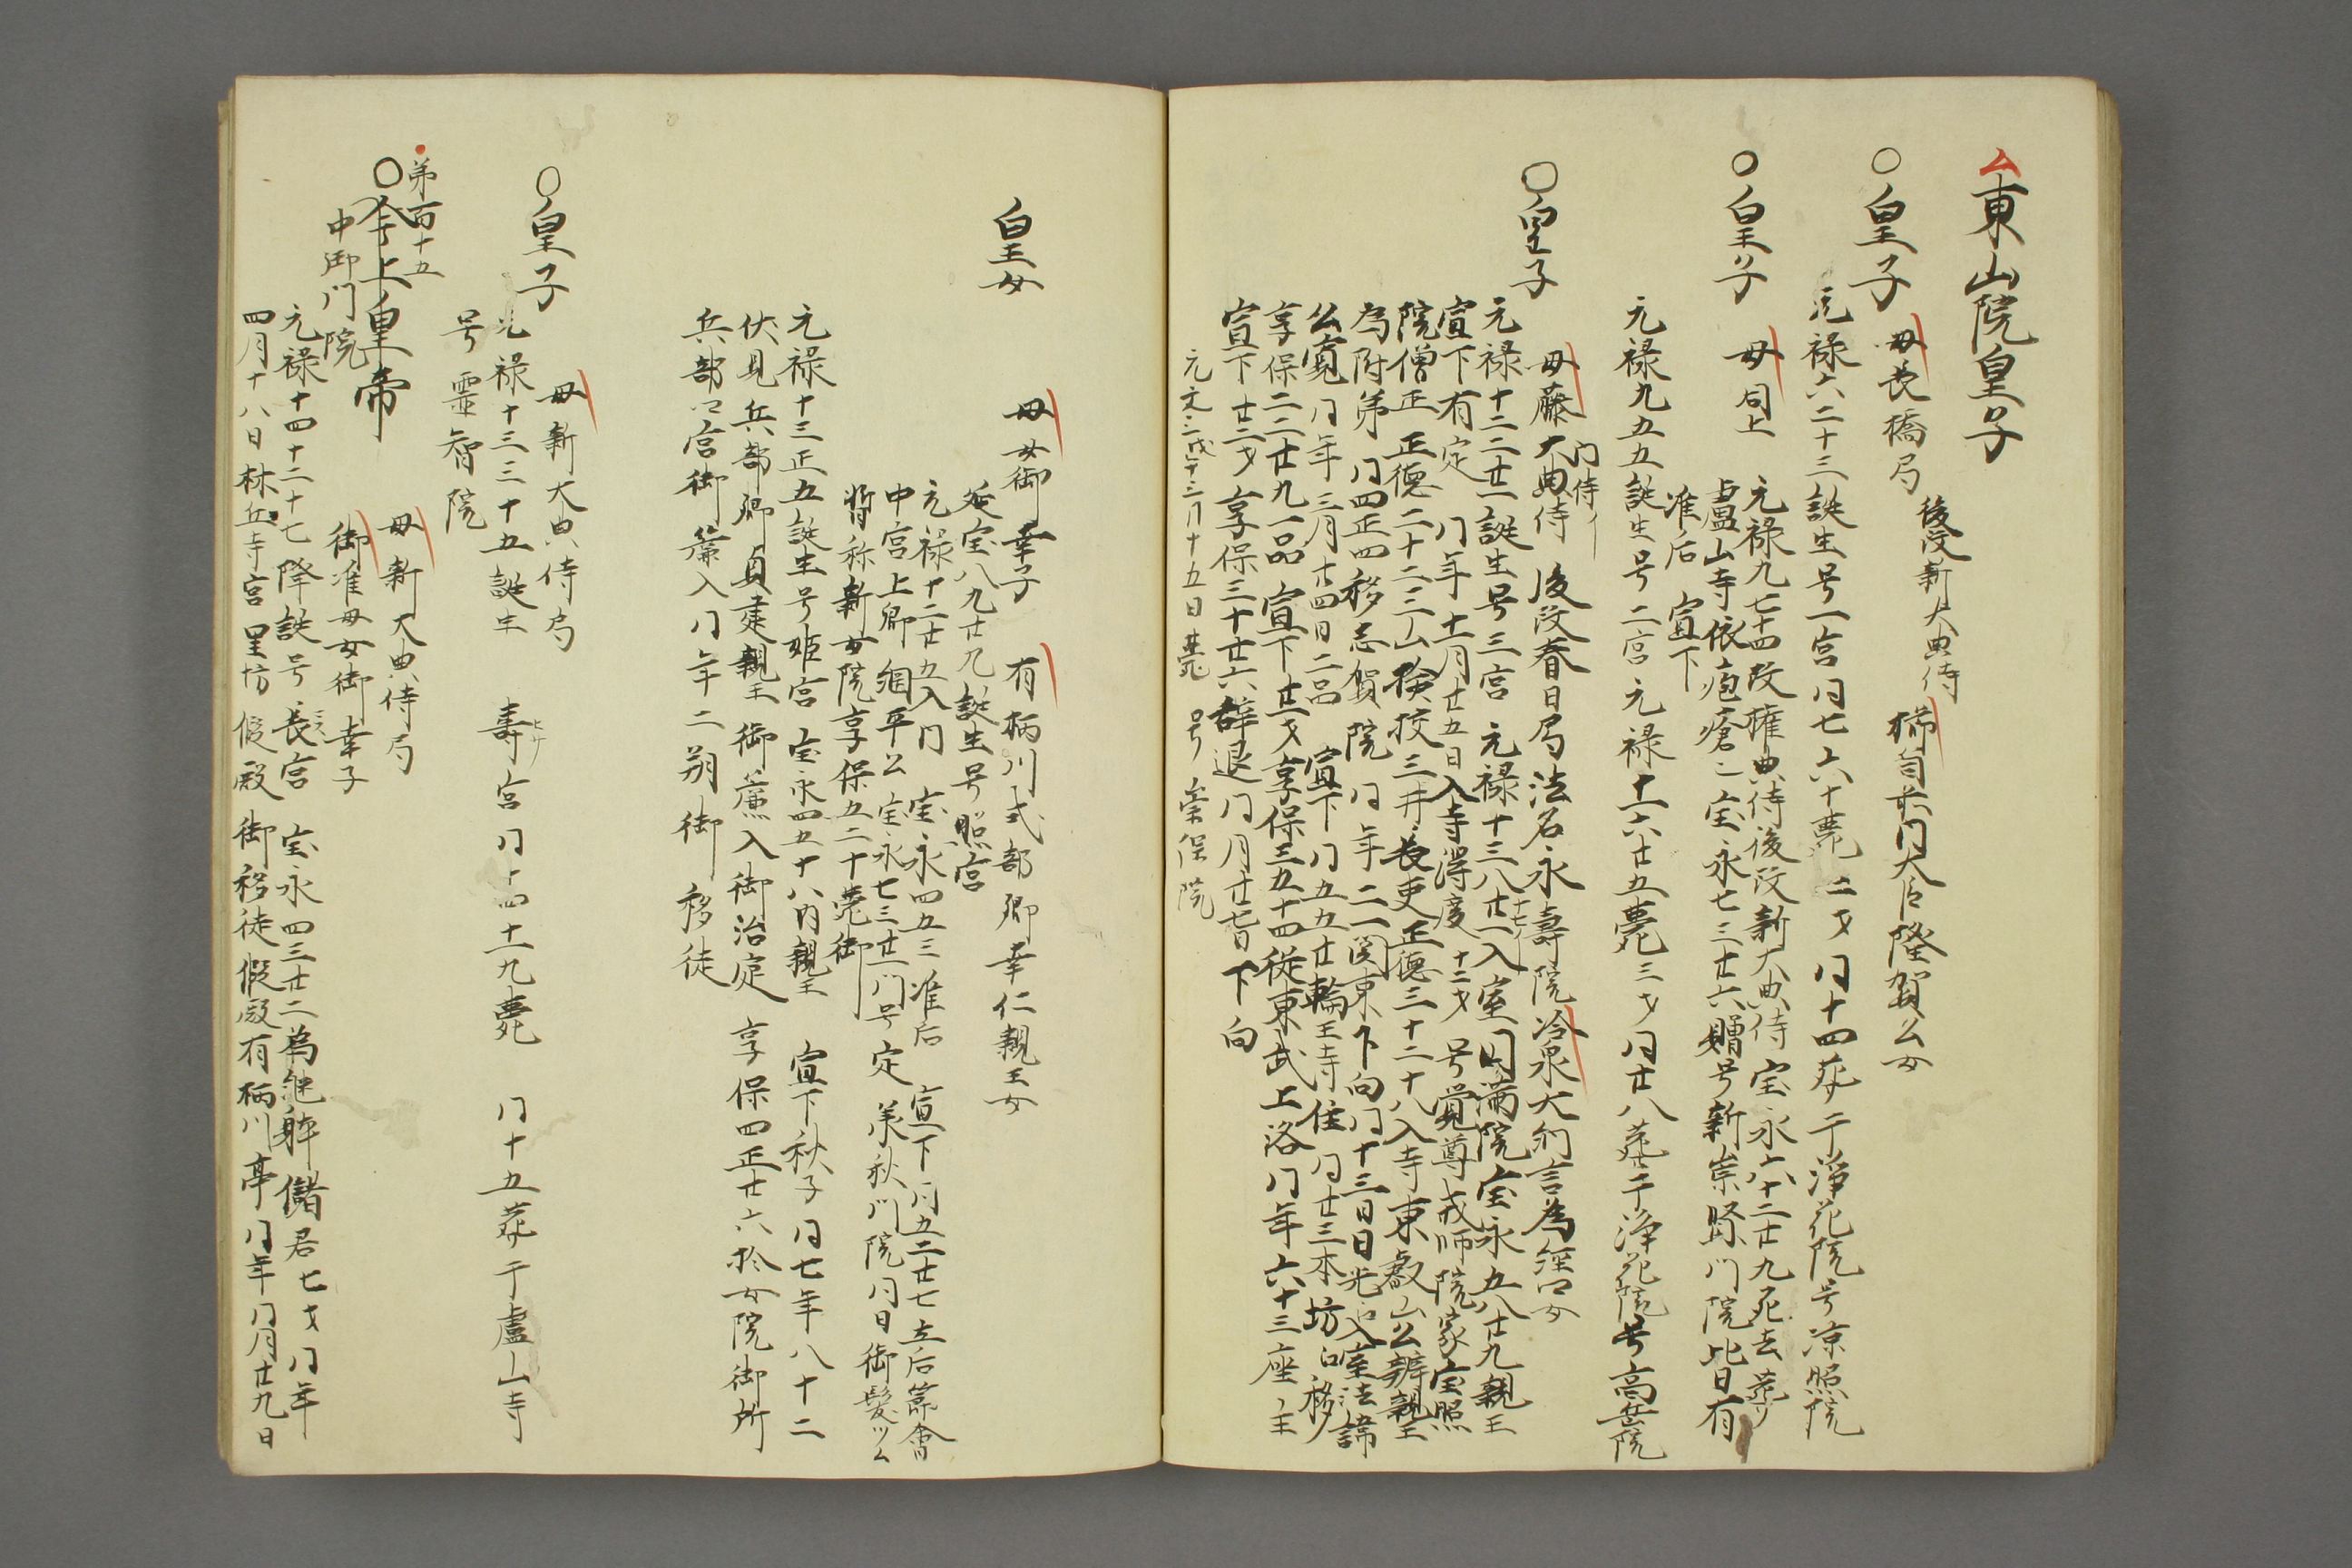 東山院皇子
○皇子 母長橋局 後改新大典侍 櫛笥前内大臣隆賀公女
元禄六二十三誕生号一宮同七六十薨二才同十四葬于浄花院号凉照院
○皇子 母同上 元禄九七十四改權典侍後改新大典侍宝永六十二廿九死去葬
盧山寺依疱瘡ニ宝永七三廿六贈号新崇賢門院此日有
准后 宣下
元禄九五五誕生号二宮元禄十一六廿五薨三才同廿八葬于浄花院号高岳院
○皇子 母藤大典侍 内侍イ 後改春日局法名永壽院冷泉大納言為経口女
元禄十二二廿一誕生号三宮 元禄十三八廿一入室円満院宝永五八廿九親王
宣下有定 同年十一月廿五日入寺得度 十二才 号覚尊戒師院家宝照
院僧正 正德二十二二山検校三井長吏正德三十二十八入寺東叡山公辨親王
為附弟 同四正四移志賀院同年二一関東下向同十三日日光口入室法諱
公寛同年三月廿四日二品 宣下同五五廿輪王寺住同廿三本坊口移
享保二二廿九一品 宣下廿一才享保三五十四従東武上洛同年六十三座主
宣下廿二才享保三十廿六辞退同月廿一日下向
元文三戊午三月十五日薨 号崇保院
皇女 母女御幸子 有栖川式部卿幸仁親王女
延宝八九廿九誕生号照宮
元禄十二廿五入内 宝永四五三准后 宣下同五二廿七立后節會
中宮上卿綱平公 宝永七三廿一門号定 美秋門院同日御髪ツム
皆称新女院享保五二十薨御
元禄十三正五誕生号姫宮 宝永四五十八内親王 宣下秋子同七年八十二
伏見兵部卿貞建親王 御簾入御治定 享保四正廿六於女院御所
兵部口宮御簾入同年二朔御移徒
○皇子 母新大典侍局
元禄十三三十五誕生 壽宮 同十四十一九薨 同十五葬于盧山寺
号靈智院
弟百十五
○今上皇帝 母新大典侍局
中御門院 御准母女御幸子
元禄十四十二十七降誕号長宮 宝永四三廿二為継躰儲君七才同年
四月十八日林丘寺宮里坊假殿御移徒假殿有栖川亭同年同月廿九日